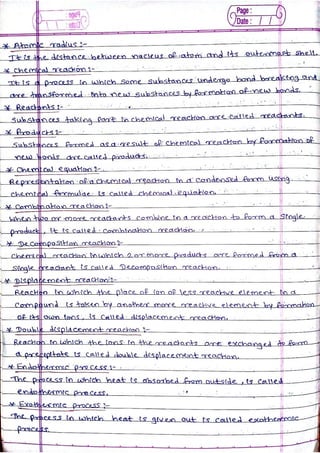 Page :
Date : / /
* Atomic radius :-
It is the distance between nucleus of atom and its outermost shell.
* Chemical reaction :-
It is a process in which some substances undergo bond breaking and
are transformed into new substances by formation of new bonds.
* Reactants :-
Substances taking part in chemical reaction are called reactants.
* Products :-
Substances formed as a result of chemical reaction by formation of
new bonds are called products.
* Chemical equation :-
Representation of a chemical reaction in a condensed form using
chemical formulae is called chemical equation.
* Combination reaction :-
When two or more reactants combine in a reaction to form a single
product, it is called combination reaction.
* Decomposition reaction :-
Chemical reaction in which 2 or more products are formed from a
single reactant is called Decomposition reaction.
* Displacement reaction :-
Reaction in which the place of ion of less reactive element in a
compound is taken by another more reactive element by formation
of its own ions, is called displacement reaction.
* Double displacement reaction :-
Reaction in which the ions in the reactants are exchanged to form
a precipitate is called double displacement reaction.
* Endothermic process :-
The process in which heat is absorbed from outside, is called
endothermic process.
* Exothermic process :-
The process in which heat is given out is called exothermic
process.